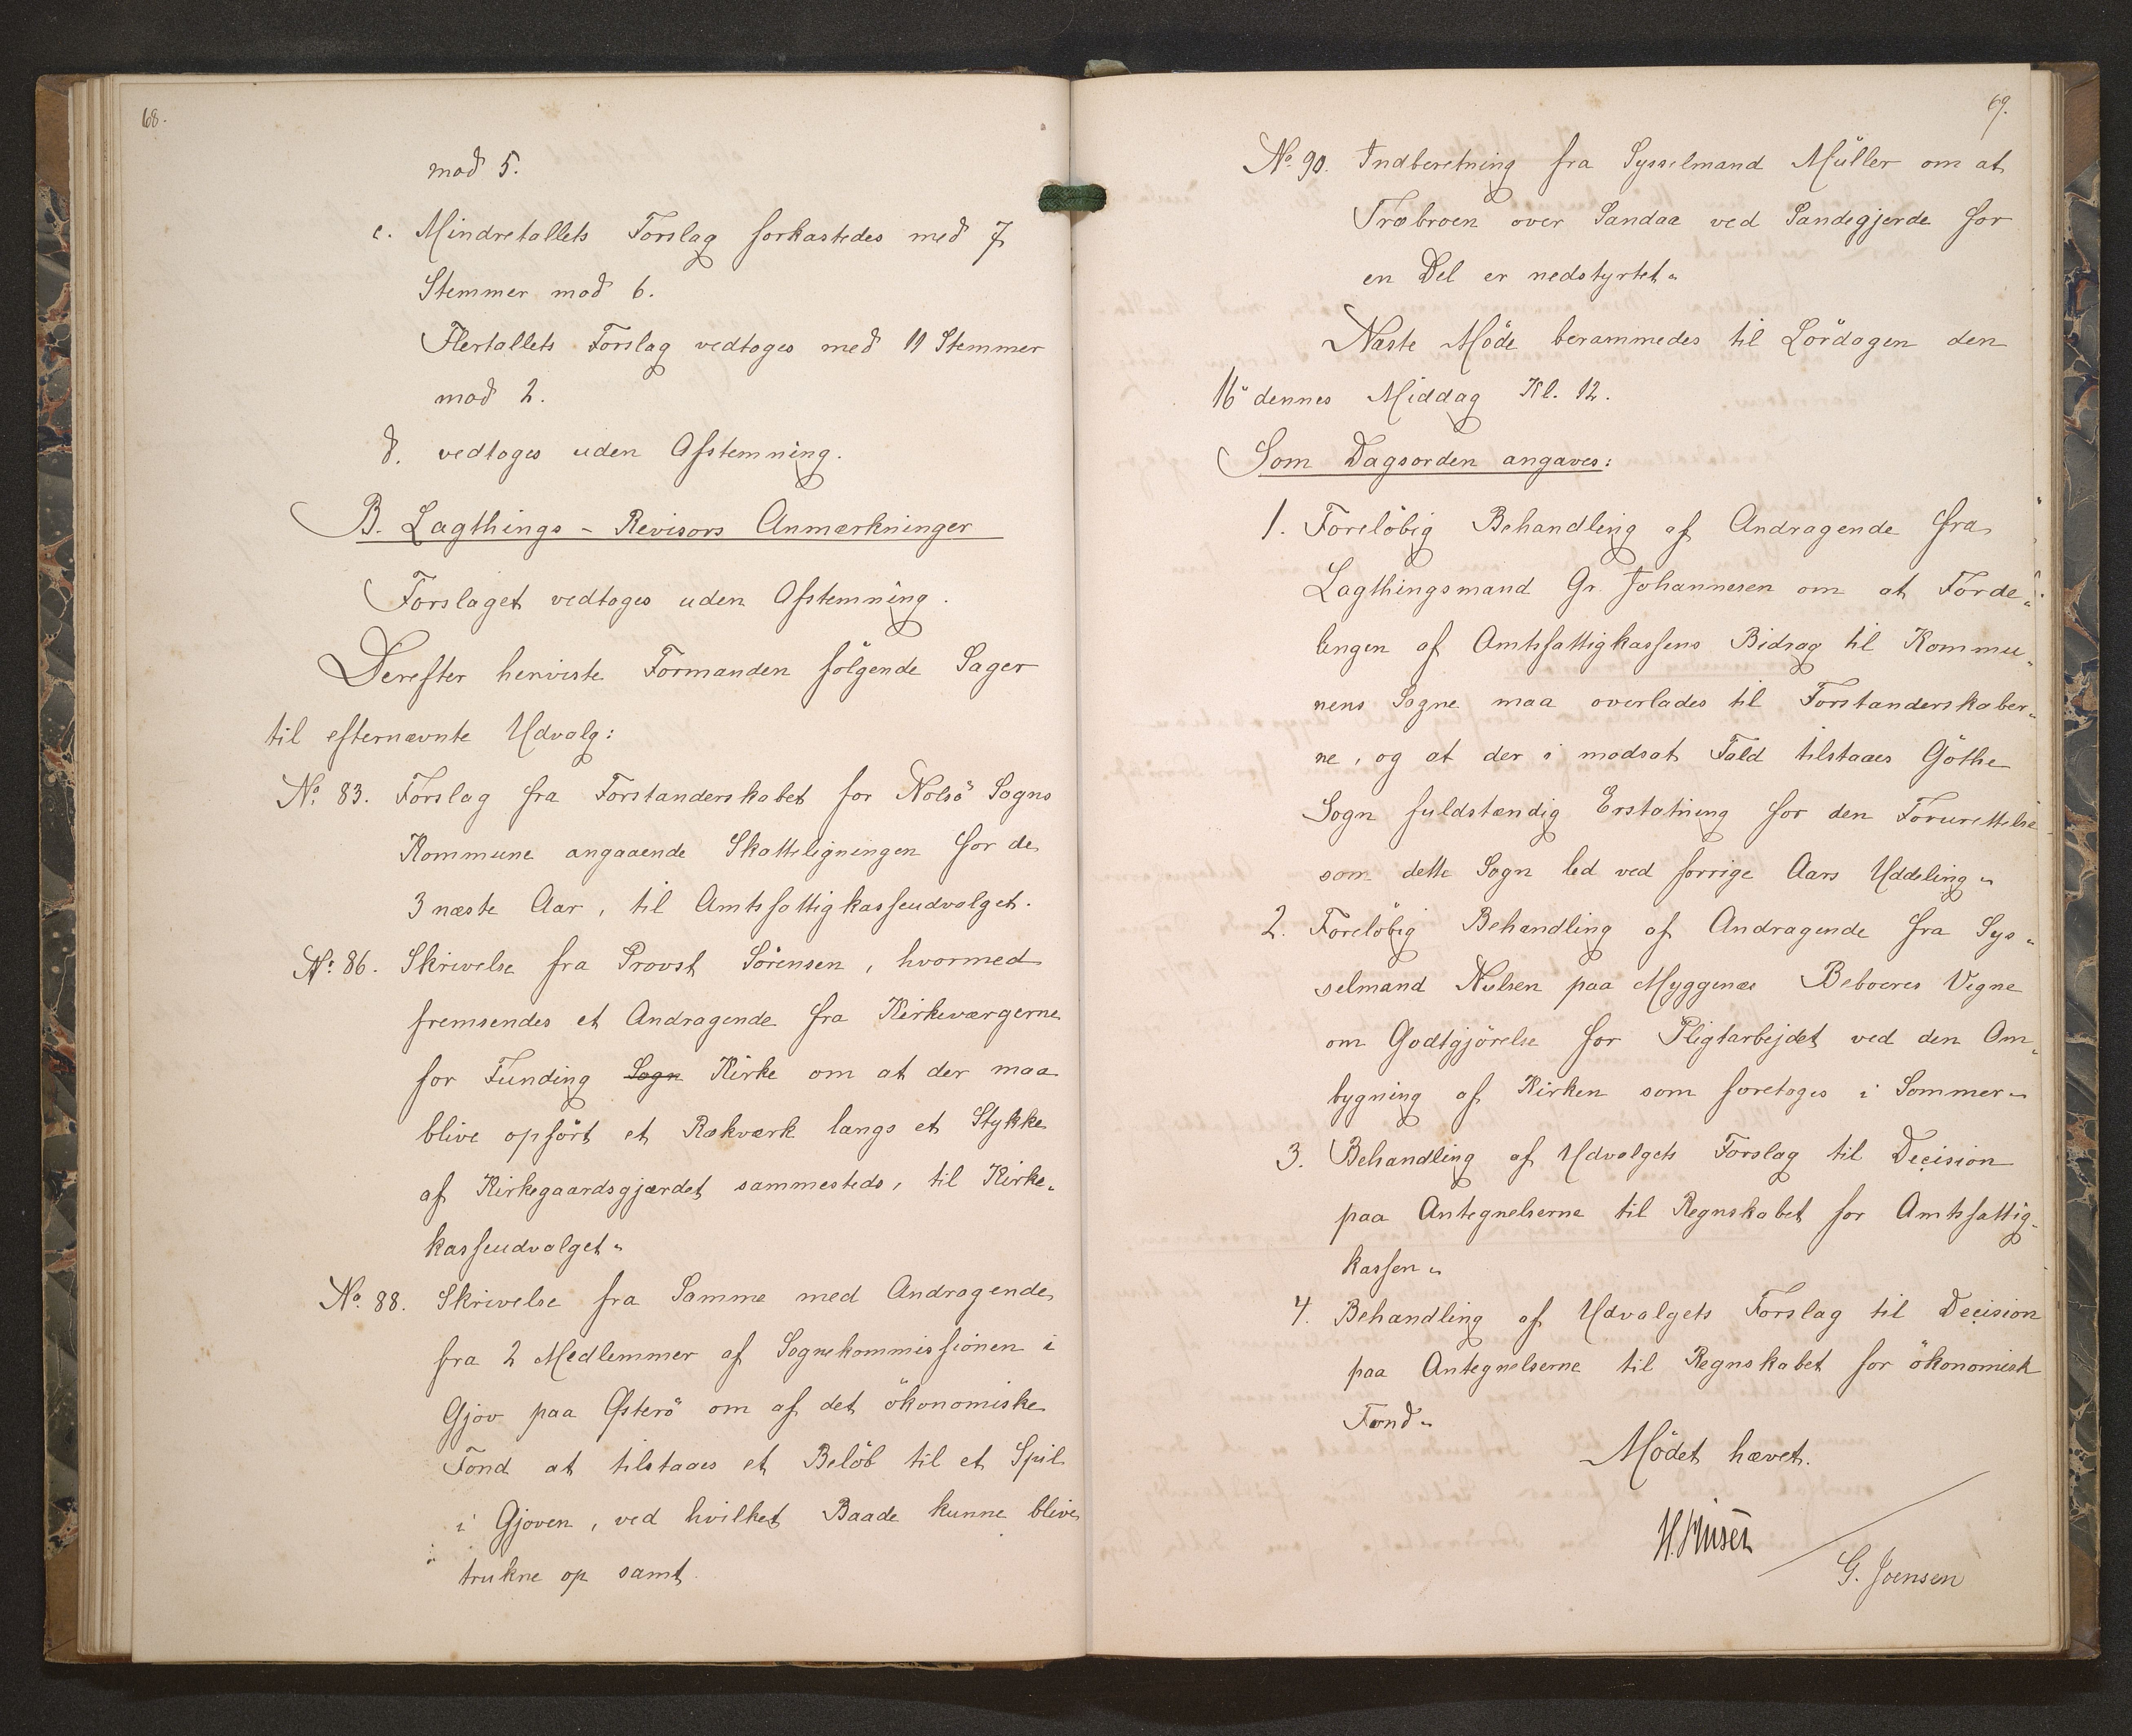 68.
mod 5.
c. Mindretallets Forslag forkastedes med 7
Stemmer mod 6.
Flertallets Forslag vedtoges med 11 Stemmer
mod 2.
d. vedtoges uden Afstemning.
B. Lagthings - Revisors Anmærkninger
Forslaget vedtoges uden Afstemning.
Derefter henviste Formanden følgende Sager
til efternævnte Udvalg:
No. 83. Forslag fra Forstanderskabet for Nolsö Sogns
Kommune angaaende Skatteligningen for de
3 næste Aar, til Amtsfattigkasseudvalget.
No. 86. Skrivelse fra Provst Sörensen, hvormed
fremsendes et Andragende fra Kirkeværgerne
for Funding Sogn Kirke om at der maa
blive opført et Rækværk langs et Stykke
af Kirkegaardsgjærdet sammesteds, til Kirke„
kasseudvalget„
No. 88. Skrivelse fra Samme med Andragende
fra 2 Medlemmer af Sognekommissionen i
Gjov paa Østerö om af det økonomiske
Fond at tilstaaes et Belöb til et Spil
i Gjoven, ved hvilket Baade kunne blive
trukne op samt
69.
No. 90. Indberetning fra Sysselmand Müller om at
Træbroen over Sandaa ved Sandegjerde for
en Del er nedstyrtet„
Næste Möde berammedes til Lördagen den
16" dennes Middag Kl. 12.
Som Dagsorden angaves:
1. Forelöbig Behandling af Andragende fra
Lagthingsmand Gr. Johannesen om at Forde„
lingen af Amtsfattigkassens Bidrag til Kommu„
nens Sogne maa overlades til Forstanderskaber„
ne, og at der i modsat Fald tilstaaes Göthe
Sogn fuldstændig Erstatning for den Forurettelse
som dette Sogn led ved forrige Aars Uddeling„
2. Forelöbig Behandling af Andragende fra Sys„
selmand Nielsen paa Myggenæs Beboeres Vegne
om Godtgjörelse for Pligtarbejdet ved den Om„
bygning af Kirken som foretoges i Sommer„
3. Behandling af Udvalgets Forslag til Decision
paa Antegnelserne til Regnskabet for Amtsfattig„
kassen„
4. Behandling af Udvalgets Forslag til Decision
paa Antegnelserne til Regnskabet for økonomisk
Fond„
Mödet hævet.
G. Joensen